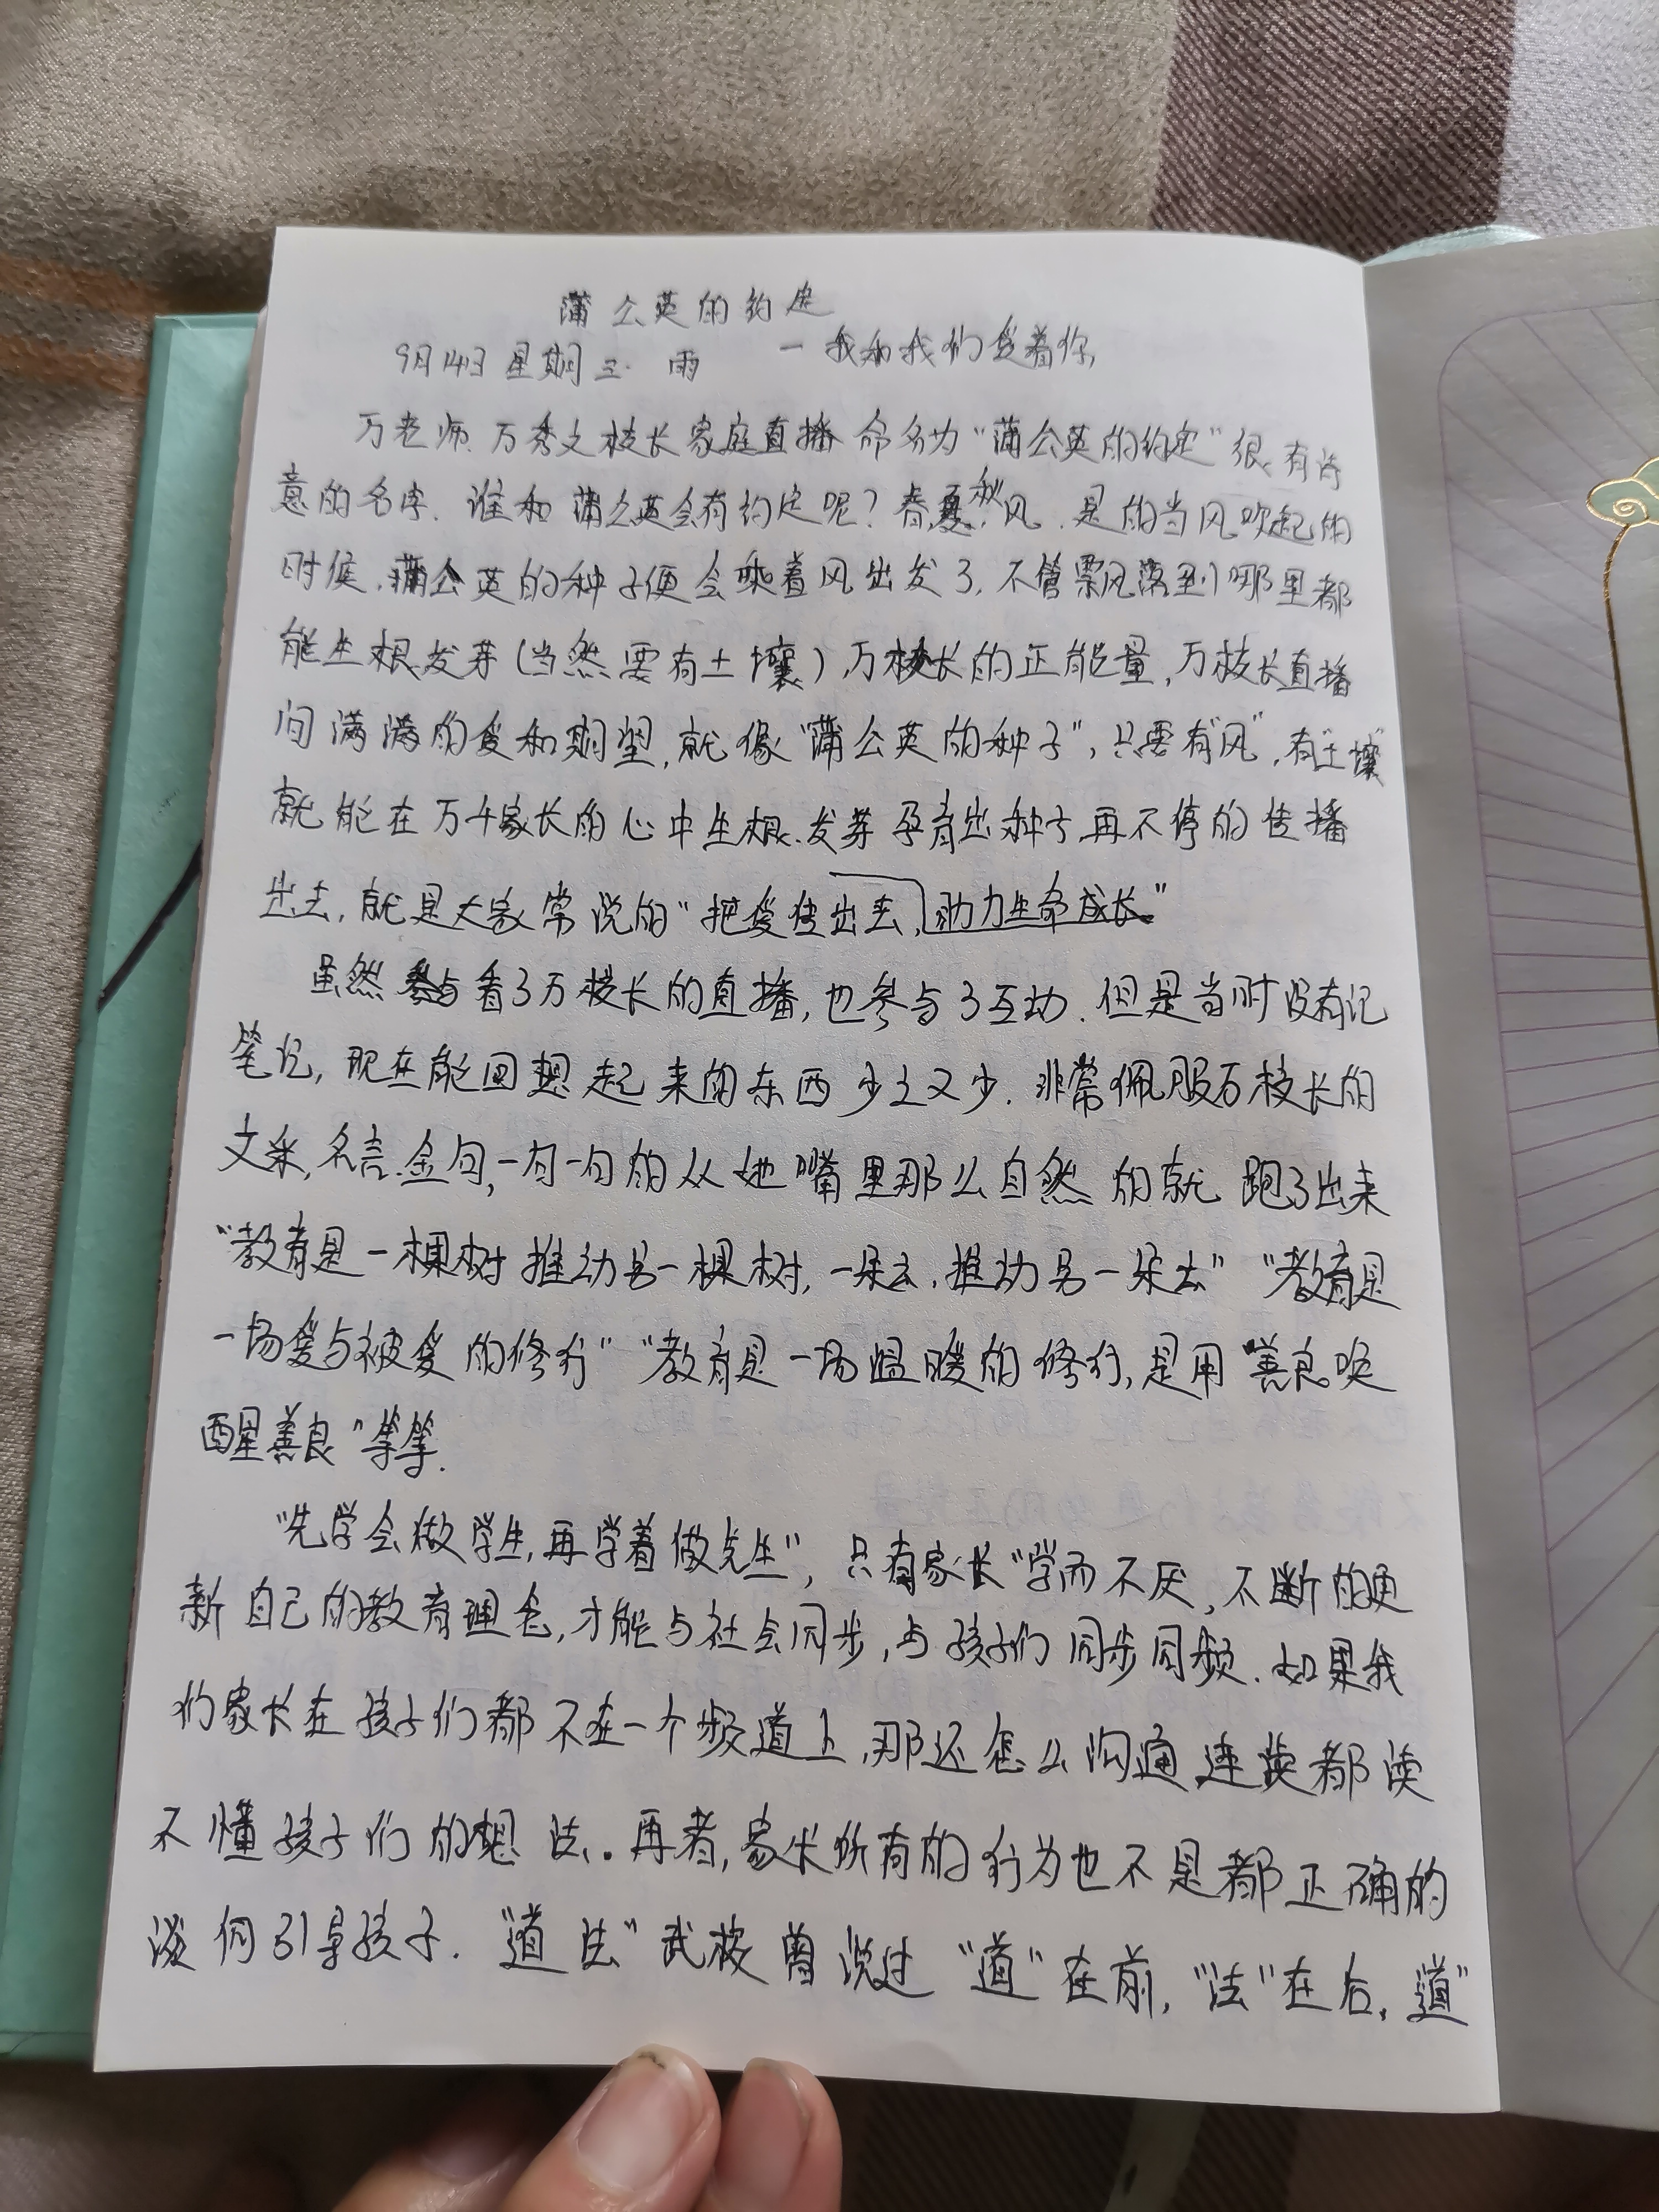 蒲公英的约定
9月14日 星期三 雨 一我和我们爱着你
万老师.万秀文校长家庭直播命名为“蒲公英的约定”很有诗
意的名字.谁和蒲公英会有约定呢?春夏秋风.是的当风吹起的
时候,蒲公英的种子便会乘着风出发了,不管飘落到哪里都
能生根发芽(当然要有土壤),万校长的正能量,万校长直播
间满满的爱和期望,就像“蒲公英的种子”,只要有“风”,有“土壤”
就能在万千家长的心中生根.发芽孕育出种子再不停的传播
出去,就是大家常说的“把爱传出去,助力生命成长”
虽然看了万校长的直播,也参与了互动.但是当时没有记
笔记,现在能回想起来的东西少之又少.非常佩服万校长的
文采,名言.金句,一句一句的从她嘴里那么自然的就跑了出来
“教育是一棵树推动另一棵树,一朵云,推动另一朵云”“教育是
一场爱与被爱的修行”“教育是一场温暖的修行,是用善良唤
醒善良”等等.
“先学会做学生,再学着做先生”,只有家长“学而不厌,不断的更
新自己的教育理念,才能与社会同步,与孩子们同步同频.如果我
们家长在孩子们都不在一个频道上,那还怎么沟通连读都读
不懂孩子们的想法.再者,家长所有的行为也不是都正确的
谈何引导孩子.“道法”武校曾说过“道”在前,“法”在后,道”